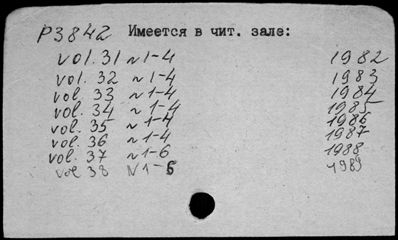 P3842 Имеется в чит. зале:
vol. 31 N 1-4 1982
vol. 32 N 1-4 1983
vol. 33 N 1-4 1984
vol. 34 N 1-4 1985
vol. 35 N 1-4 1986
vol. 36 N 1-4 1987
vol. 37 N 1-6 1988
vol 38 N 1-6 1989